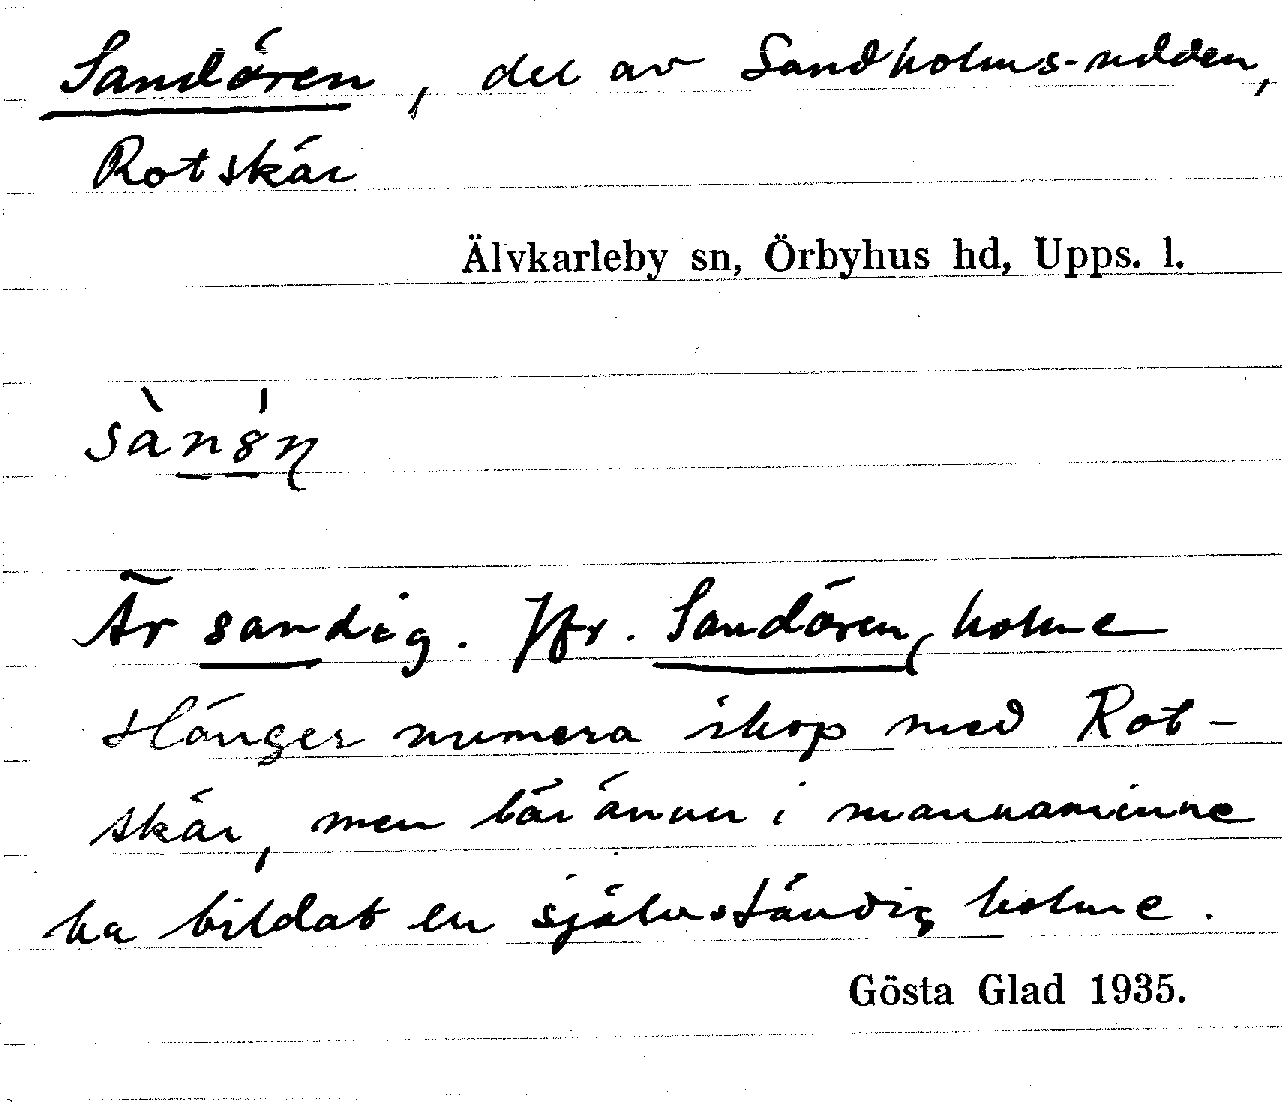 Sandören, del av Sandholms-udden,
Rotskär
Älvkarleby sn, Örbyhus hd, Upps. l.
Är sandig. Jfr. Sandören, holme
Hänger numera ihop med Rot-
skär, men lär ännu i mannaminne
ha bildat en självständig holme.
Gösta Glad 1935.